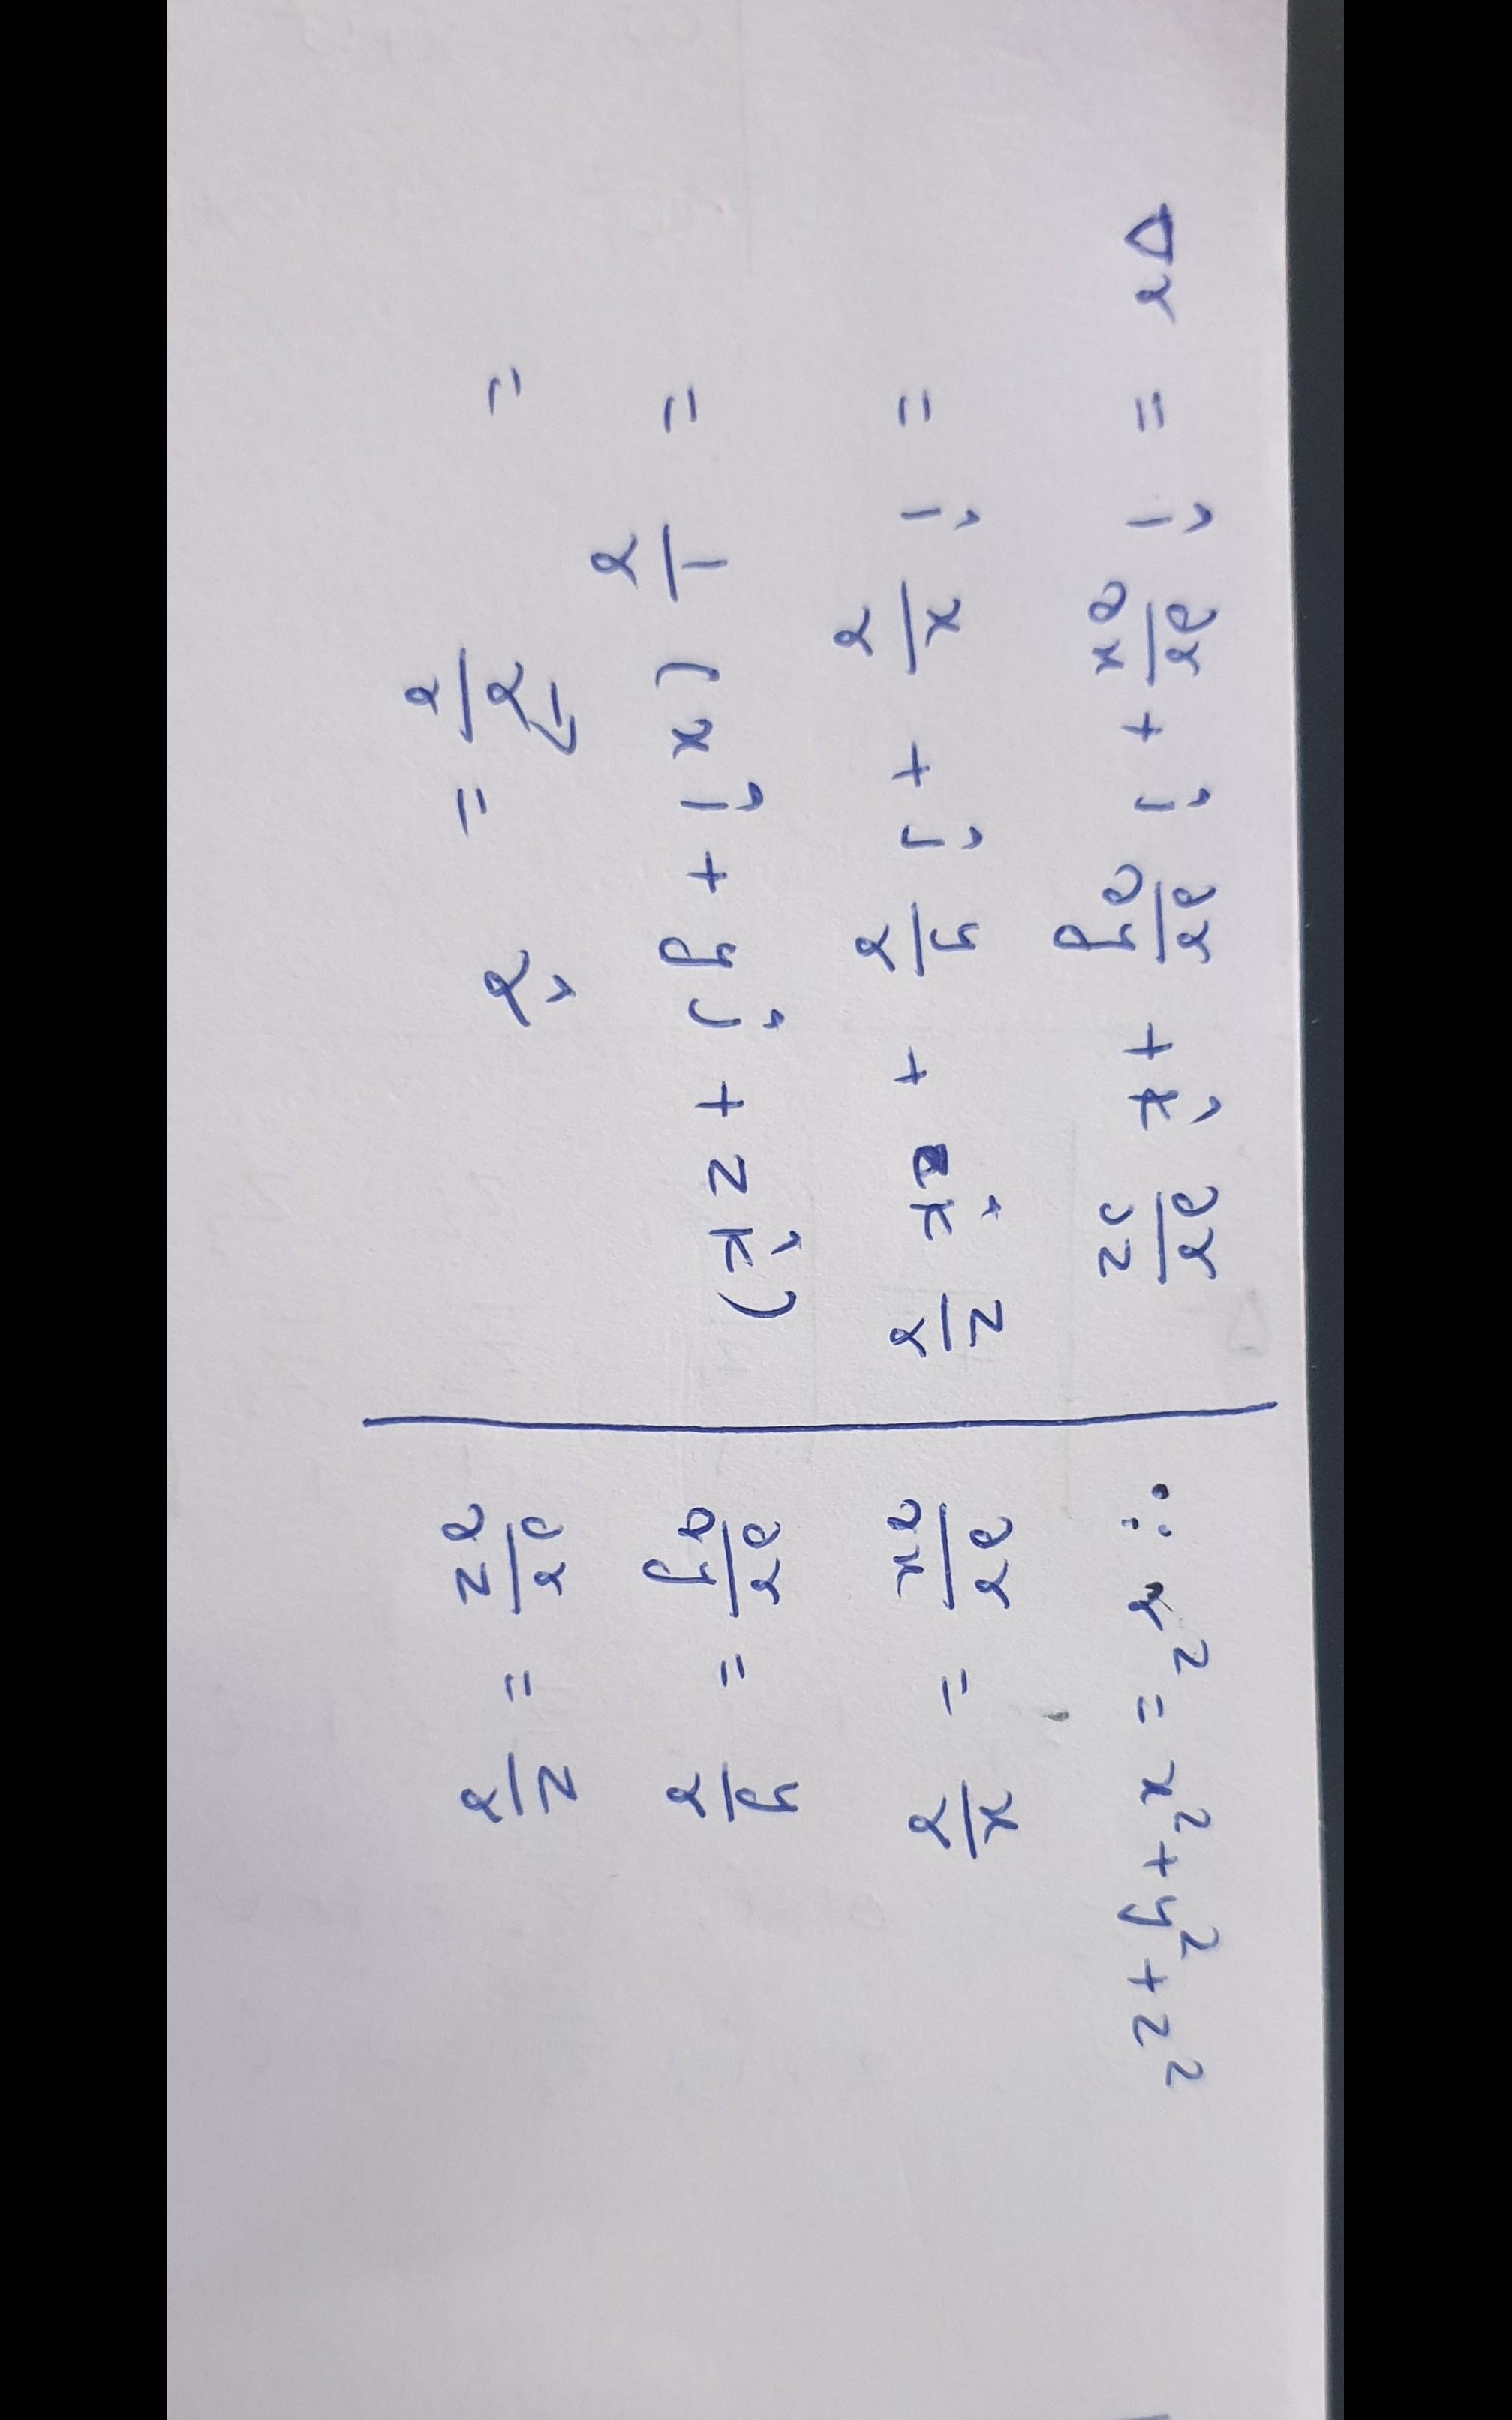 ∇r = î ∂r/∂x + ĵ ∂r/∂y + k̂ ∂r/∂z
= î x/r + ĵ y/r + k̂ z/r
= 1/r (x î + y ĵ + z k̂)
= r⃗/r = r̂
∵ r² = x² + y² + z²
∂r/∂x = x/r
∂r/∂y = y/r
∂r/∂z = z/r